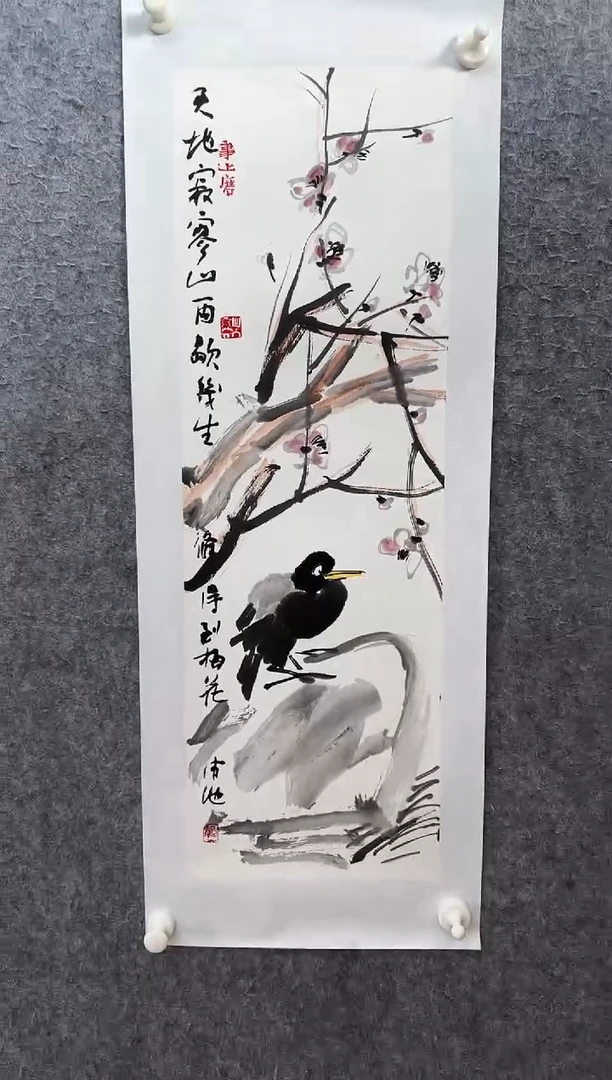 天地寂寥山雨歇幾生修得到梅花
池
事上磨